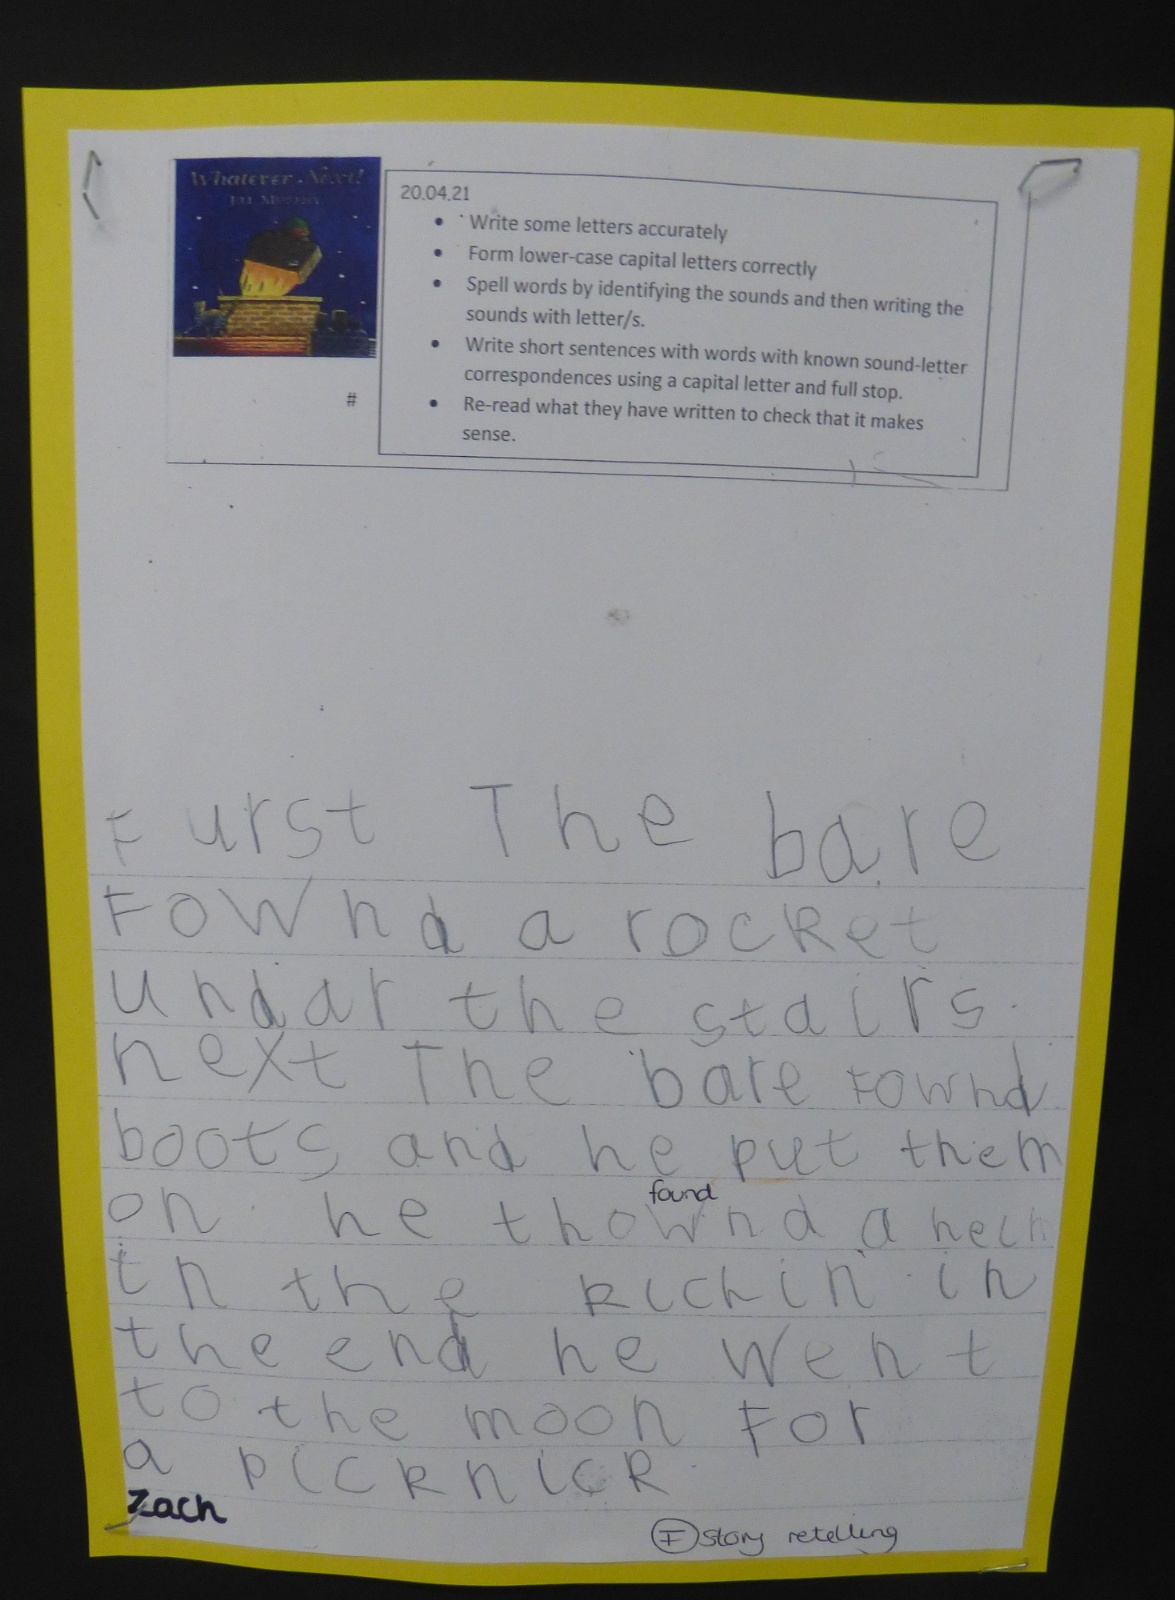 Whatever Next!
Jill Murphy
20.04.21
• Write some letters accurately
• Form lower-case capital letters correctly
• Spell words by identifying the sounds and then writing the
sounds with letter/s.
• Write short sentences with words with known sound-letter
correspondences using a capital letter and full stop.
• Re-read what they have written to check that it makes
sense.
#
Furst The bare
Fownd a rocket
undar the stairs.
next The bare Fownd
boots and he put them
found
on. he thownd a
in the kichin. in
the end he went
to the moon For
a picknick.
Zach
I story retelling